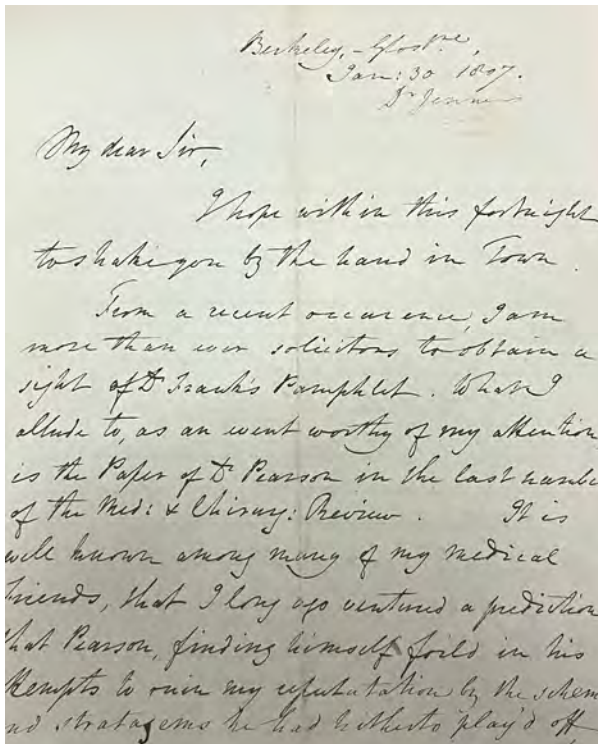 Berkeley, - Glosre,
Jan: 30 1807.
Dr Jenner
My dear Sir,
I hope within this fortnight
to shake you by the hand in Town.
From a recent occurence, I am
more than ever solicitous to obtain a
sight of Dr Frank's Pamphlet. What I
allude to, as an event worthy of my attention
is the Paper of Dr Pearson in the last numbe
of the Med: & Chirurg: Review. It is
well known among many of my medical
friends, that I long ago ventured a prediction
that Pearson, finding himself foild in his
ttempts to ruin my reputation by the schem
nd stratagems he had hitherto play'd off,